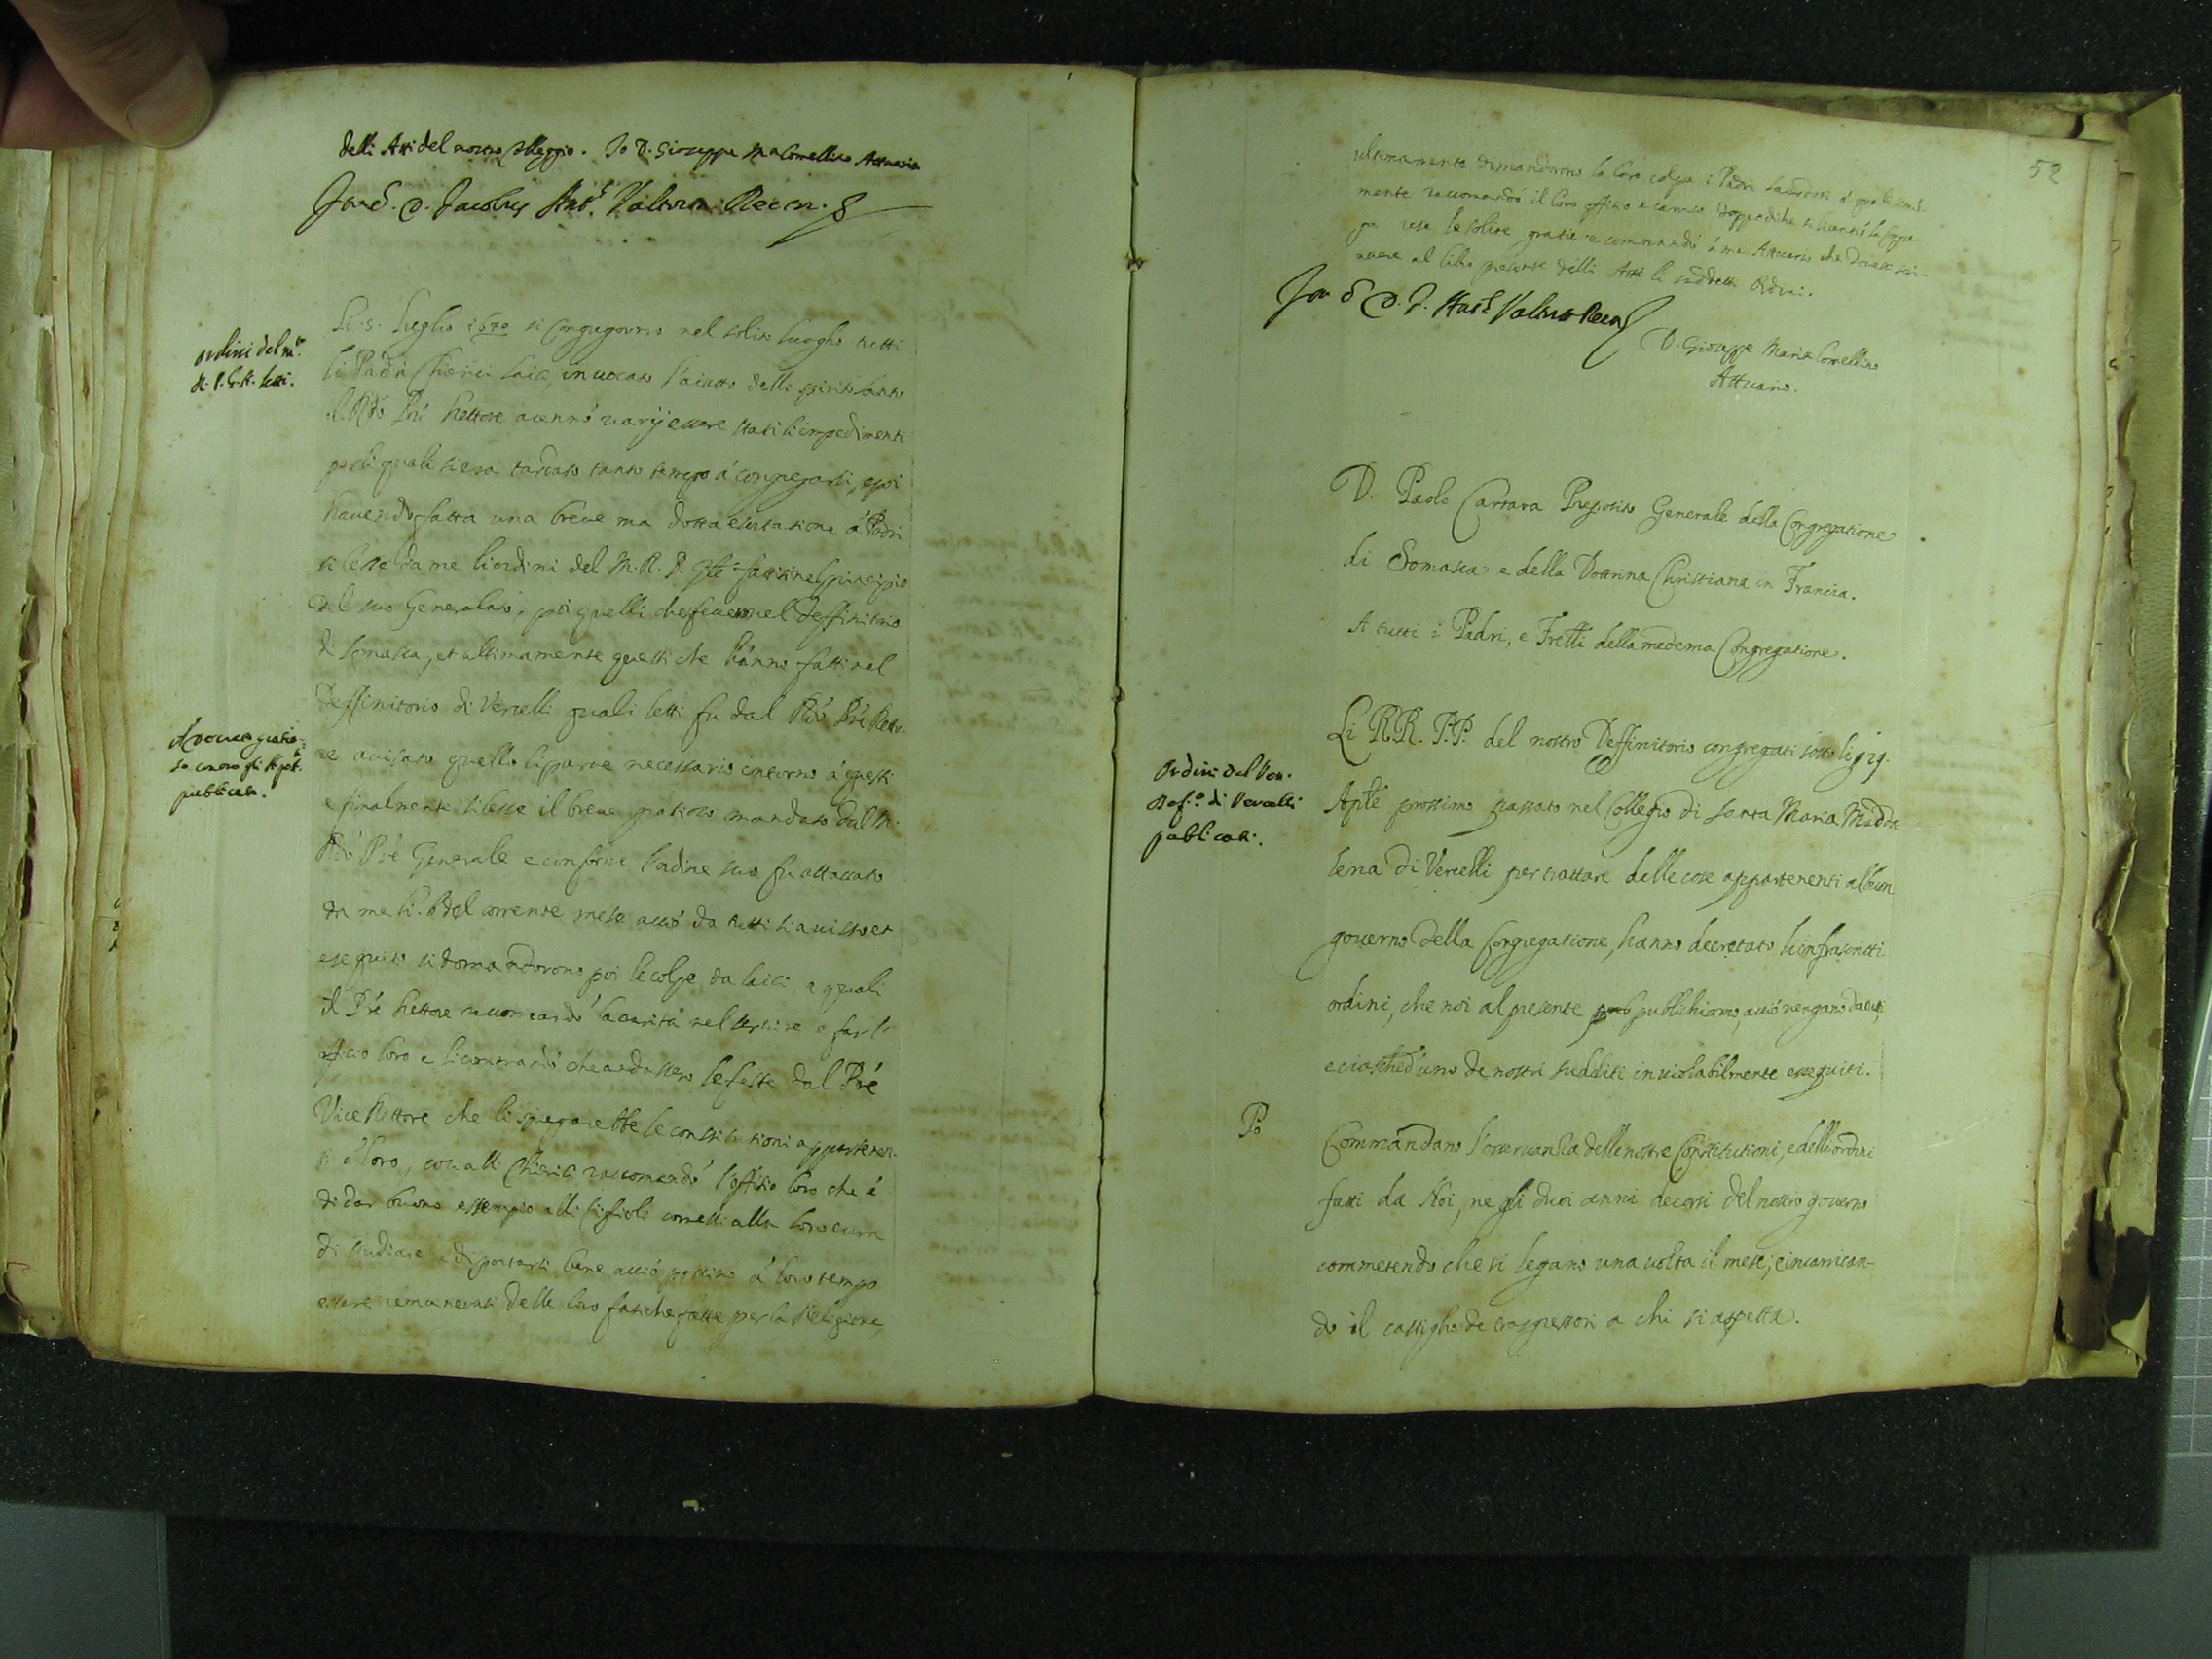 delli Atti del nostro Collegio. Io D. Gioseppe Ma Comellino Attuario
D. Jacobus Ant.s Valtura
Ordini del M.
R. P. G.le letti.
Li 5. luglio 1670 si congregorno nel solito luogho tutti
li Padri Chierici laici, invocato l'aiutto dello spirito santo
il Rdo Pre Rettore acennò varij essere stati li impedimenti
per li quali si era tardato tanto tempo á congregarsi, e poi
havendo fatta una breve ma dotta esortatione a Padri
si lesse da me li ordini del M. R. P. Gle fatti nel principio
del suo Generalato, poi quelli che fece nel Deffinitorio
di Somasca, et ultimamente questi che hánno fatti nel
Deffinitorio di Vercelli quali letti fu dal Rdo Pre Retto-
re avisato quello li parve necessario intorno á questi
e finalmente si lesse il breve gratioso mandato dal M.
Rdo Pre Generale e conforme l'ordine suo fu attaccato
da me li 6 del corrente mese acció da tutti sia visto et
eseguito si domandorono poi le colpe da laici a quali
il Pre Rettore raccomandó la caritá nel servire e far l'
officio loro e li commandò che andassero le feste dal Pre
Vice Rettore che li spiegarebbe le constitutioni apparten-
ti á loro, così alli Chierici raccomandó l'offitio loro che é
di dar buono essempio alli figlioli comessi alla loro cura
di studiare e di portarsi bene acció possino á loro tempo
essere remunerati delle loro fatiche fatte per la Religione,
gratio-
so contro gli Apost.
publicato.
52
ultimamente dimandorono la loro colpa i Padri Sacerdoti á quali simil-
mente raccomandó il loro offitio e carico doppo di che si licentió la Congre-
ga rese le solite gratie e commandó á me Attuario che dovesse scri-
vere al libro presente delli Atti li suddetti Ordini.
D. J. Ant.s Valtura
D. Gioseppe Maria Comellino
Attuario.
D. Paolo Carrara Preposito Generale della Congregatione
di Somasca e della Dottrina Christiana in Francia.
A tutti i Padri, e Frelli della medema Congregatione.
Ordini del Ven.
Def.o di Vercelli
publicati.
Li R.R. P.P. del nostro Deffinitorio congregati sotto li
Aple prossimo passato nel Collegio di Santa Maria Madda
lena di Vercelli per trattare delle cose appartenenti al buon
governo della Congregatione, hanno decretato li infrascritti
ordini, che noi al presente publichiamo, acció vengano da tutti,
e ciascheduno de nostri sudditi inviolabilmente esseguiti.
Po
Commándano l'osservanza delle nostre Constitutioni, e delli ordini
fatti da Noi, ne gli duoi anni decorsi del nostro governo
commetendo che si legano una volta il mese; e incarrican-
do il castigho de trasgressori a chi si aspetta.